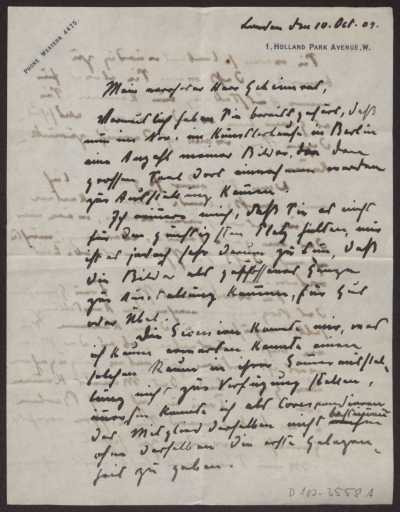 PHONE WESTERN 4475.
London den 10. Oct. 09.
1, HOLLAND PARK AVENUE, W.
Mein verehrter Herr Geheimrat,
Vermutlich haben Sie bereits gehört, daß
nun im Nov. im Künstlerhause in Berlin
eine Anzahl meiner Bilder, den
grossen Teil dort einnehmen werden
zur Ausstellung kommen.
Ich erinnere mich, daß Sie es nicht
für den günstigsten Platz halten, mir
ist es jedoch sehr darum zu tun, daß
die Bilder als geschlossenes Ganze
zur Ausstellung kommen, für Gut
oder Übel.
Die Secession konnte mir, was
ich kaum erwarten konnte einen
solchen Raum in ihrer Sommerausstel-
lung nicht zur Verfügung stellen,
immerhin konnte ich als Correspondirendes
Mitglied derselben nicht
ohne derselben die erste Gelegen-
heit zu geben.
D 182-2558 A